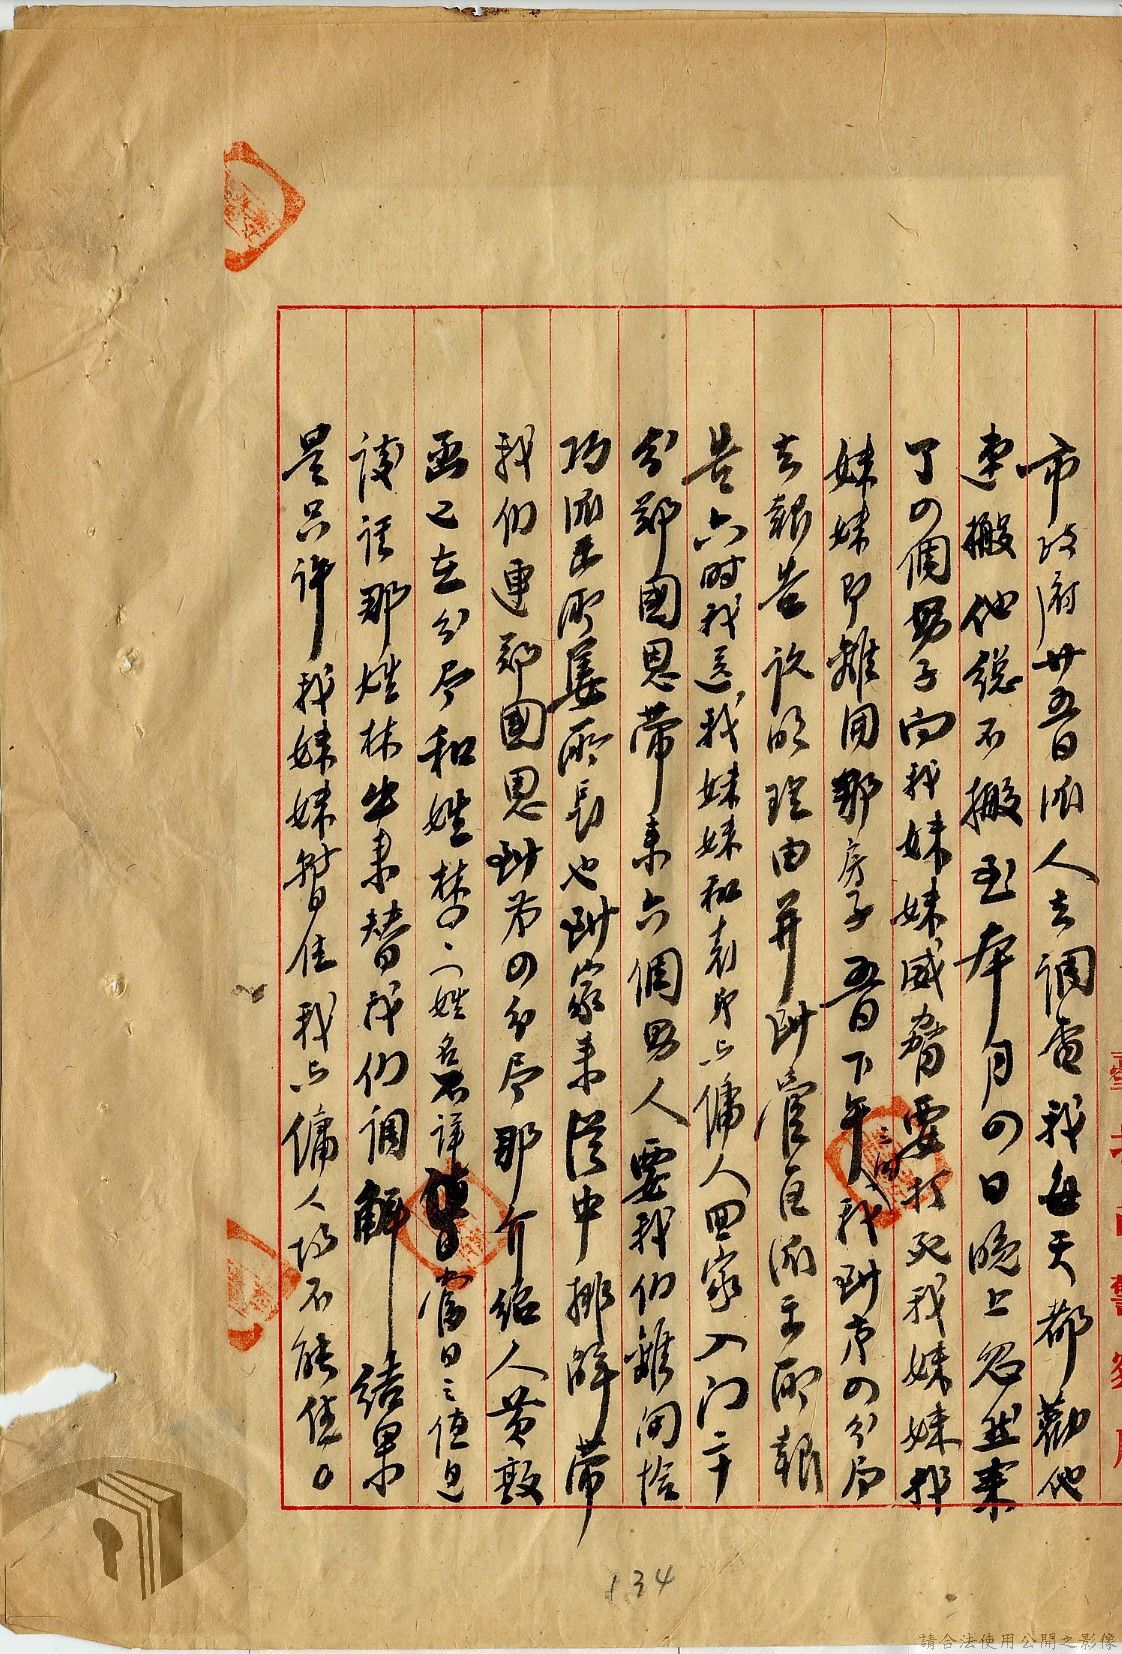 市政府廿五日派人去調查我每天都勸他
連搬他總不搬到本月四日晚上忽然來
了四個男子向我妹妹威脅要打死我妹妹我
妹妹即離開那房子五日下午我到第四分局
三時
去報告說明理由并到管區派出所報
告六時我送我妹妹和表弟与傭人回家入門二十
分鄭國恩帶來六個男人要我们離開恰
巧派出所姜所長也到家來從中排解帶
我们連鄭國恩到第四分局那介紹人黃
已在分局和姓林之一姓名不詳當日之值日
讓話那姓林出來替我们調解結果
是只許我妹妹暫住我与傭人均不能住。
134
請合法使用公開之影像